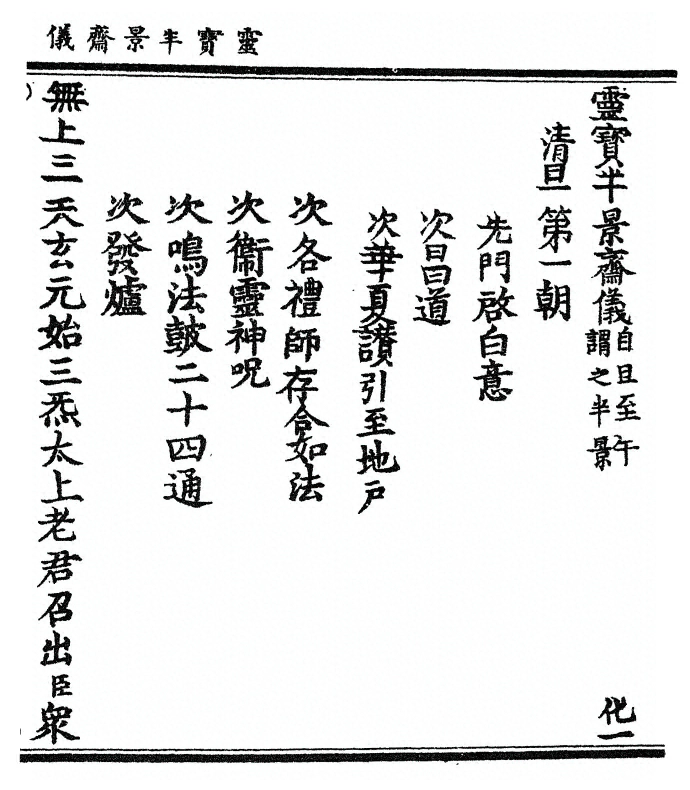 靈寶半景齋儀
靈寶半景齋儀自旦至午謂之半景 化一
清旦第一朝
先門啓白意
次昌道
次華夏讚引至地戶
次各禮師存合如法
次衞靈神呪
次鳴法鼓二十四通
次發爐
無上三天玄元始三炁太上老君召出臣衆